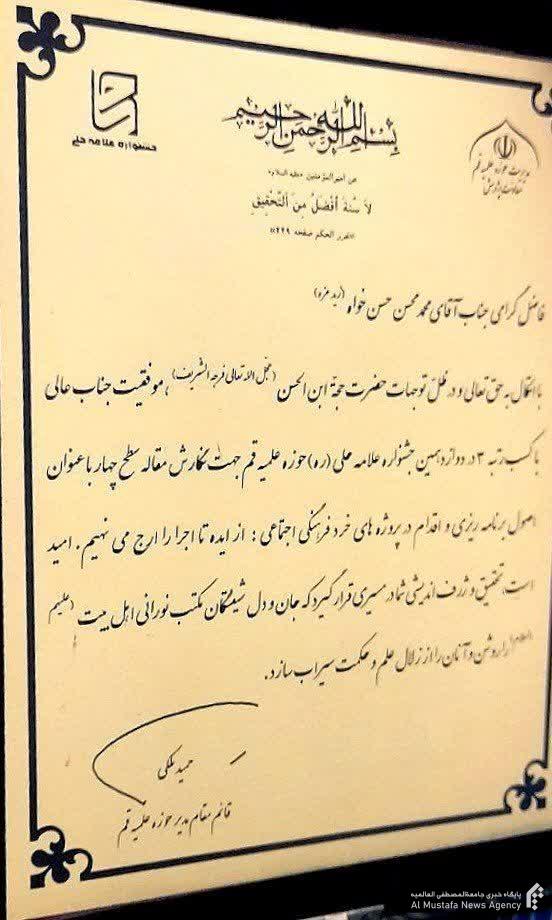 جشنواره علامه حلی
بسم الله الرحمن الرحیم
مدیریت حوزه علمیه قم
معاونت پژوهش
عن امیرالمؤمنین علیه السلام
لا سُنَّةَ أفضَلُ مِنَ التَّحقیقِ
«غرر الحکم صفحه ۲۲۹»
فاضل گرامی جناب آقای محمد محسن حسن خواه (زید عزه)
با اتکال به حق تعالی و در ظلّ توجهات حضرت حجة ابن الحسن (عجّل الله تعالی فرجه الشریف)، موفقیت جناب عالی
با کسب رتبه ۳ در دوازدهمین جشنواره علامه حلی (ره) حوزه علمیه قم جهت نگارش مقاله سطح چهار با عنوان
اصول برنامه ریزی و اقدام در پروژه های خرد فرهنگی اجتماعی: از ایده تا اجرا را ارج می نهیم. امید
است، تحقیق و ژرف اندیشی شما در مسیری قرار گیرد که جان و دل شیفتگان مکتب نورانی اهل بیت (علیهم
السلام) را روشن و آنان را از زلال علم و حکمت سیراب سازد.
حمید ملکی
قائم مقام مدیر حوزه علمیه قم
پایگاه خبری جامعةالمصطفی العالمیه
Al Mustafa News Agency